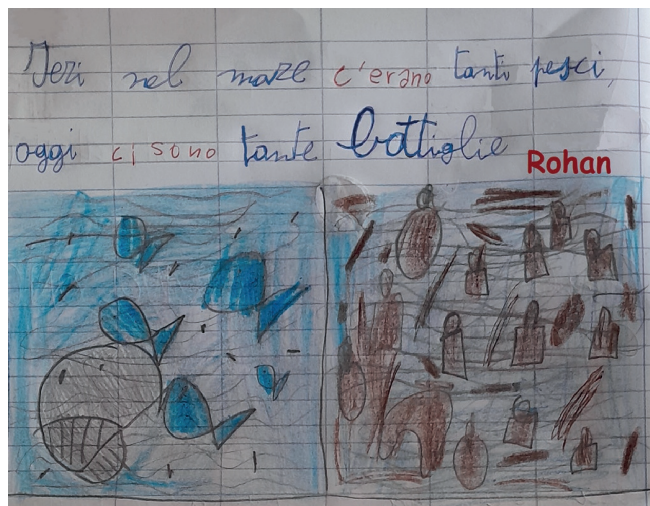 Ieri nel mare c'erano tanti pesci,
oggi ci sono tante bottiglie
Rohan